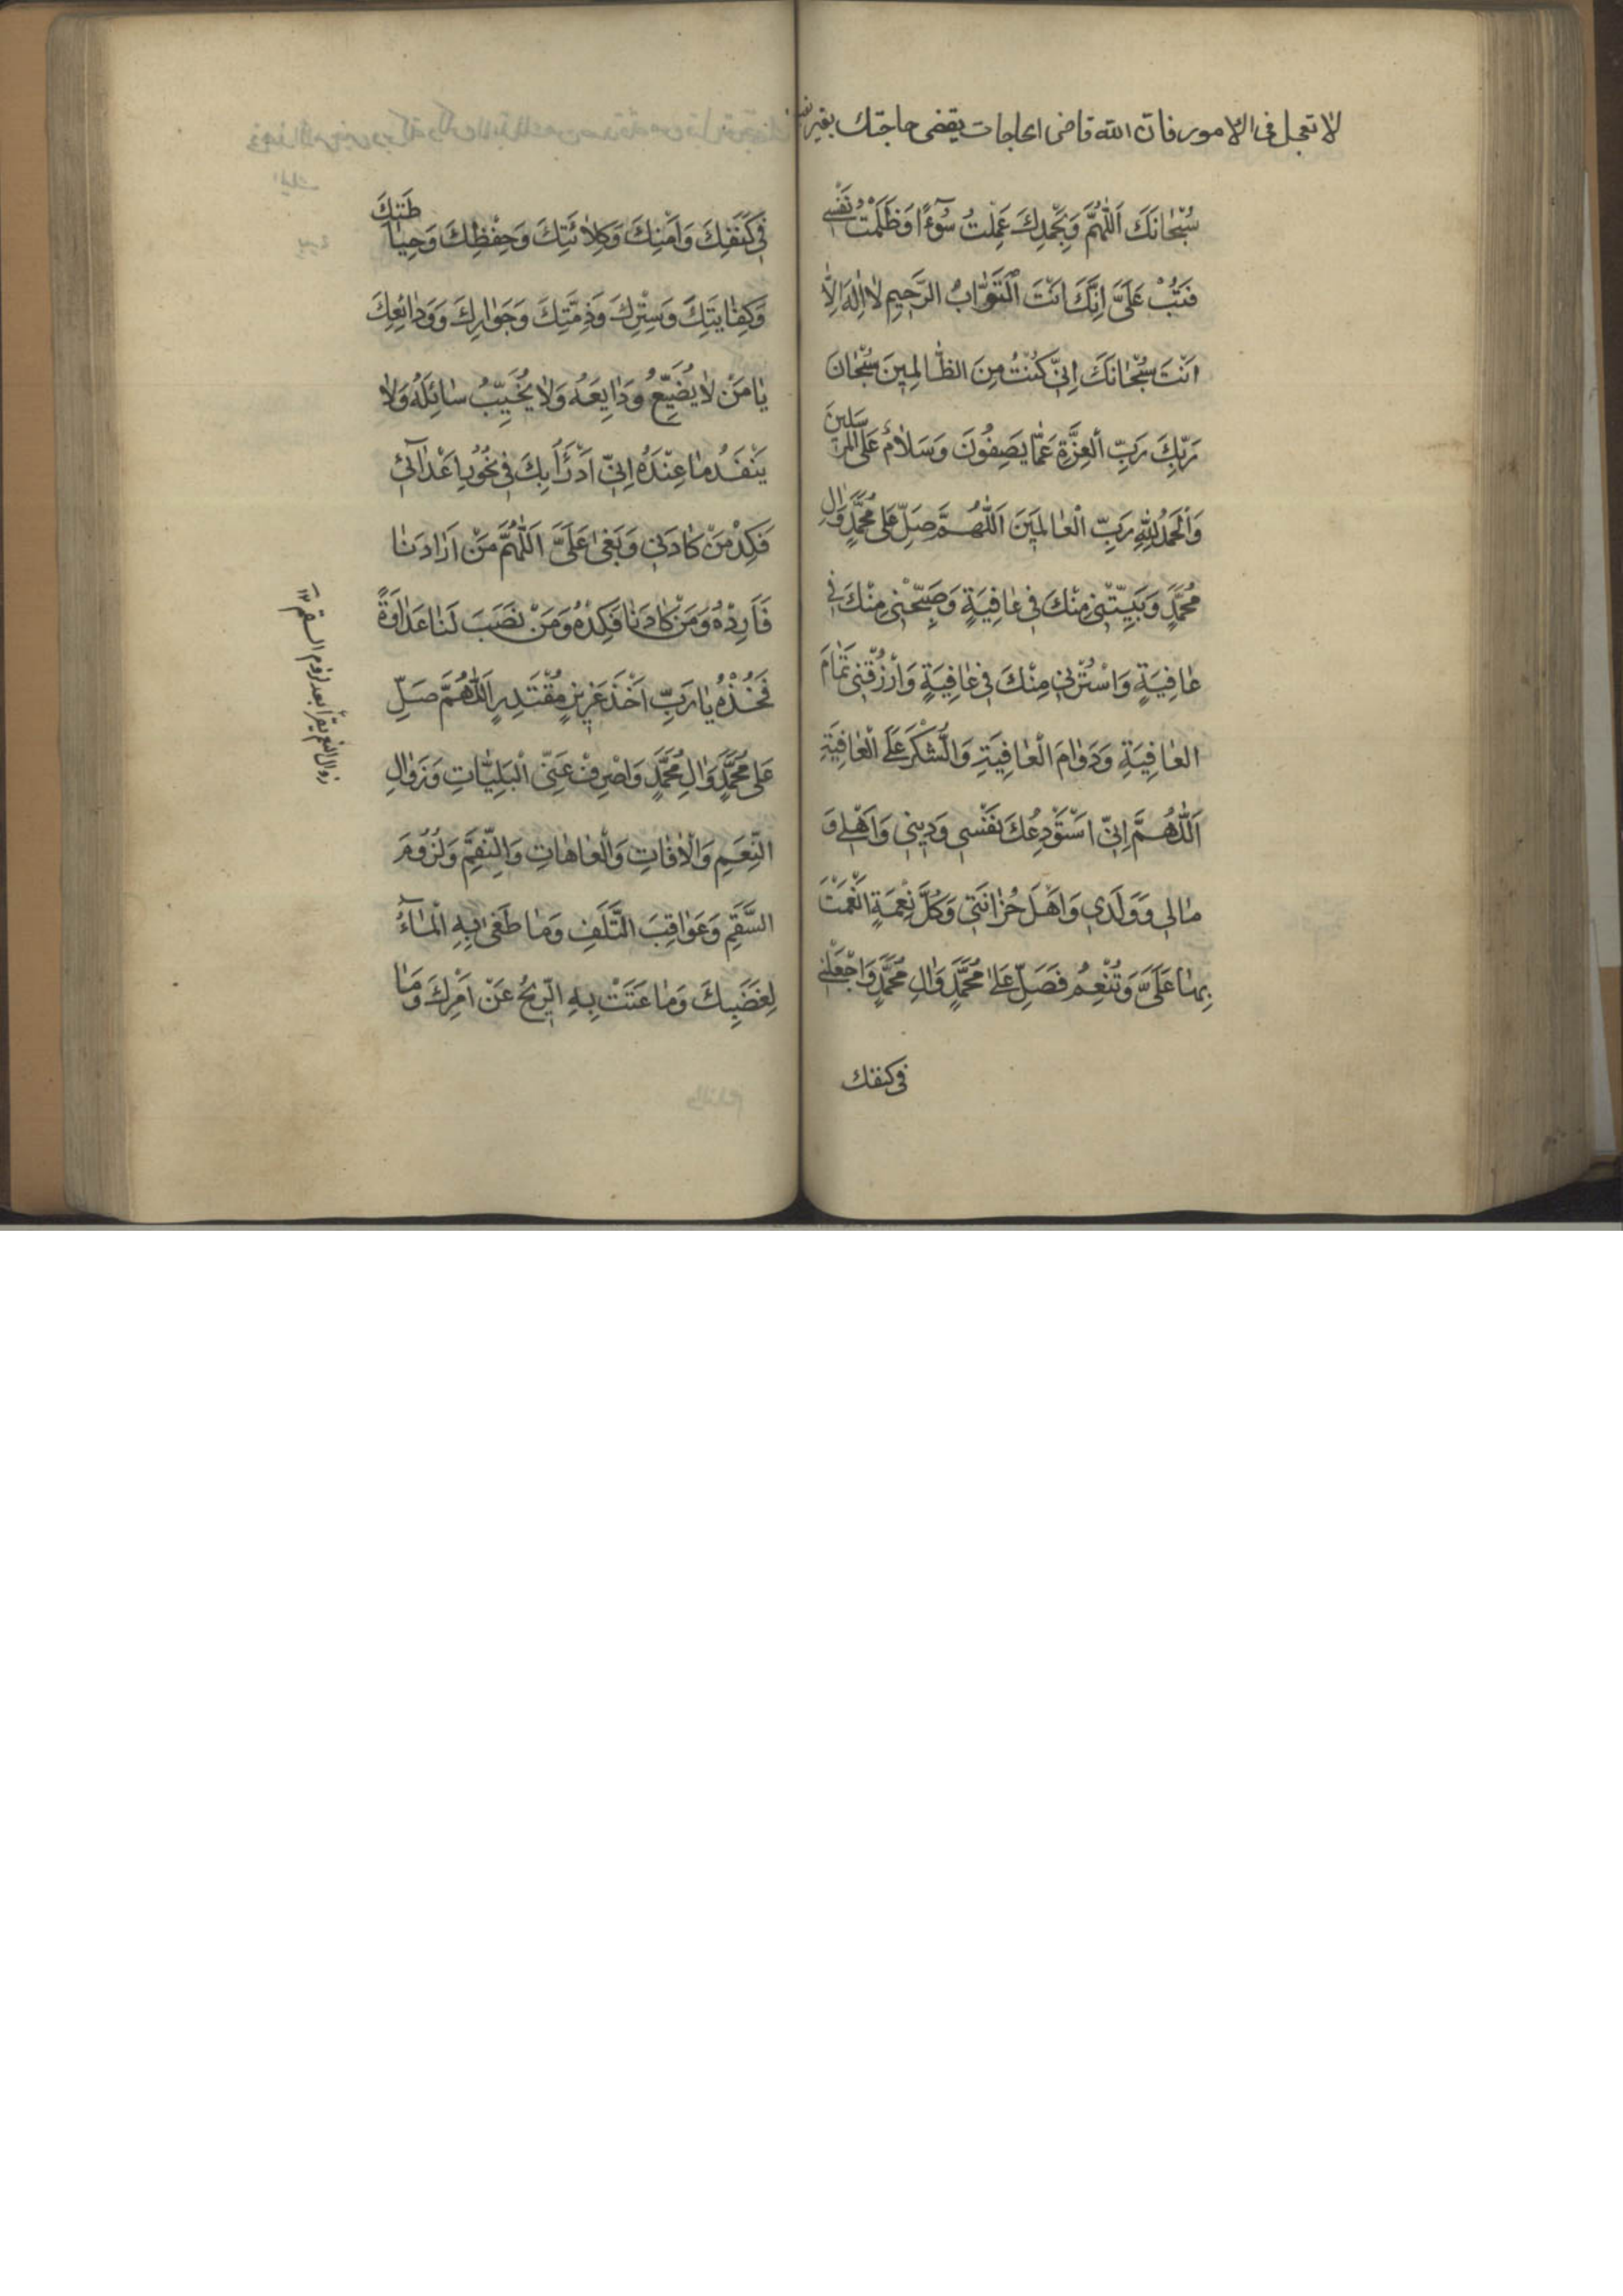 لا تعجل فی الامور فان الله قاضی الحاجات یقضی حاجتك بغیر
سُبْحٰانَكَ اَللّٰهُمَّ وَبِحَمْدِكَ عَمِلْتُ سُوٓءًا وَظَلَمْتُ نَفْسِی
فَتُبْ عَلَیَّ اِنَّكَ اَنْتَ اَلتَّوّٰابُ الرَّحِیمِ لاٰ اِلٰهَ اِلاّٰ
اَنْتَ سُبْحٰانَكَ اِنّی كُنْتُ مِنَ الظّٰالِمِینَ سُبْحٰانَ
رَبِّكَ رَبِّ الْعِزَّةِ عَمّٰا یَصِفُونَ وَسَلاٰمٌ عَلَی الْمُرْسَلِینَ
وَالْحَمْدُ لِلّٰهِ رَبِّ الْعٰالَمِینَ اَللّٰهُمَّ صَلِّ عَلٰی مُحَمَّدٍ وَاٰلِ
مُحَمَّدٍ وَبَیِّتْنِی مِنْكَ فِی عٰافِیَةٍ وَصَبِّحْنِی مِنْكَ فِی
عٰافِیَةٍ وَاسْتُرْنِی مِنْكَ فِی عٰافِیَةٍ وَارْزُقْنِی تَمٰامَ
الْعٰافِیَةِ وَدَوٰامَ الْعٰافِیَةِ وَالشُّكْرَ عَلَی الْعٰافِیَةِ
اَللّٰهُمَّ اِنّی اَسْتَوْدِعُكَ نَفْسِی وَدِینِی وَاَهْلِی وَ
مٰالِی وَوَلَدِی وَاَهْلَ حُزٰانَتِی وَكُلَّ نِعْمَةٍ اَنْعَمْتَ
بِهٰا عَلَیَّ وَتُنْعِمُ فَصَلِّ عَلٰی مُحَمَّدٍ وَاٰلِ مُحَمَّدٍ وَاجْعَلْنِی
فی كنفك
فِی كَنَفِكَ وَاَمْنِكَ وَكِلاٰئَتِكَ وَحِفْظِكَ وَحِیٰاطَتِكَ
وَكِفٰایَتِكَ وَسِتْرِكَ وَذِمَّتِكَ وَجَوٰارِكَ وَوَدٰائِعِكَ
یٰا مَنْ لاٰ یُضَیِّعُ وَدٰایِعَهُ وَلاٰ یُخَیِّبُ سٰائِلَهُ وَلاٰ
یَنْفَدُ مٰا عِنْدَهُ اِنّی اَدْرَأُ بِكَ فِی نُحُورِ اَعْدٰآئِی
فَكِدْ مَنْ كٰادَنِی وَبَغٰی عَلَیَّ اَللّٰهُمَّ مَنْ اَرٰادَنٰا
فَاَرِدْهُ وَمَنْ كٰادَنٰا فَكِدْهُ وَمَنْ نَصَبَ لَنٰا عَدٰاوَةً
فَخُذْهُ یٰا رَبِّ اَخْذَ عَزِیزٍ مُقْتَدِرٍ اَللّٰهُمَّ صَلِّ
عَلٰی مُحَمَّدٍ وَاٰلِ مُحَمَّدٍ وَاصْرِفْ عَنِّی الْبَلِیّٰاتِ وَزَوٰالِ
النِّعَمِ وَالْاٰفٰاتِ وَالْعٰاهٰاتِ وَالنِّقَمِ وَلُزُومَ
السَّقَمِ وَعَوٰاقِبَ التَّلَفِ وَمٰا طَغٰی بِهِ الْمٰآءُ
لِغَضَبِكَ وَمٰا عَتَتْ بِهِ الرِّیحُ عَنْ اَمْرِكَ وَمٰا
زوال النعم یقرأ بعد لزوم السقم ۱۲